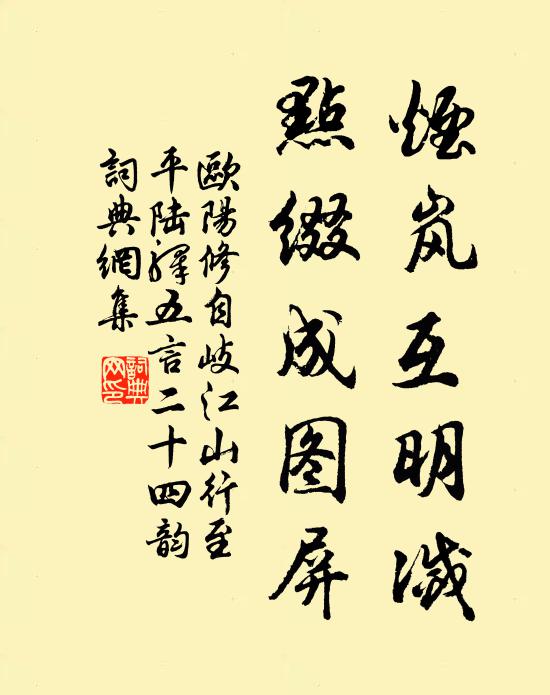 煙岚互明滅
點缀成图屏
歐陽修自歧江山行至
平陆驛五言二十四韵
詞典網集
詞典
网印